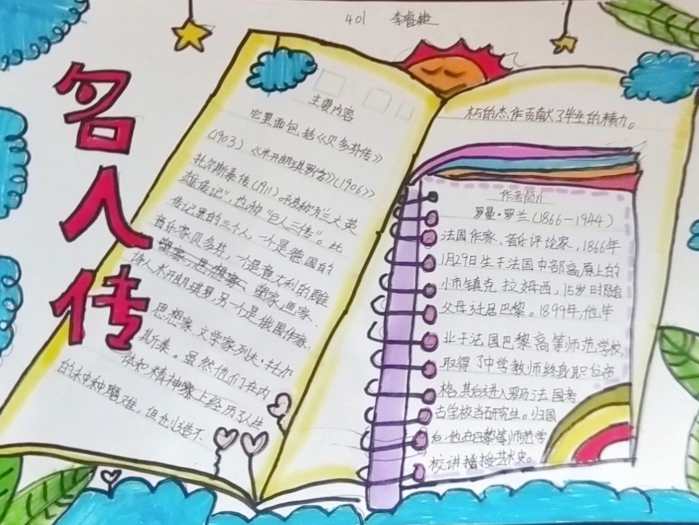 401 李睿婕
名人传
主要内容
它里面包括《贝多芬传》
(1903)《米开朗琪罗传》(1906)
托尔斯泰传(1911)
也称"巨人三传"。此
传记里的三个人，一个是德国的
音乐家贝多芬，一个是意大利的雕
塑家、画家、
诗人米开朗琪罗，另一个是俄国作家、
思想家、文学家列夫·托尔
斯泰。虽然他们在内
体和精神上经历了人生
的种种磨难，但在创造不
朽的杰作贡献了毕生的精力。
作者简介
罗曼·罗兰(1866—1944)
法国作家、音乐评论家，1866年
1月29日生于法国中部高原上的
小市镇克拉姆西，15岁时随
父母迁居巴黎。1899年，他毕
业于法国巴黎高等师范学校，
取得了中学教师终身职位资
格，其后进入罗马法国考
古学校当研究生。归国
后，他在巴黎高等师范学
校讲授艺术史。